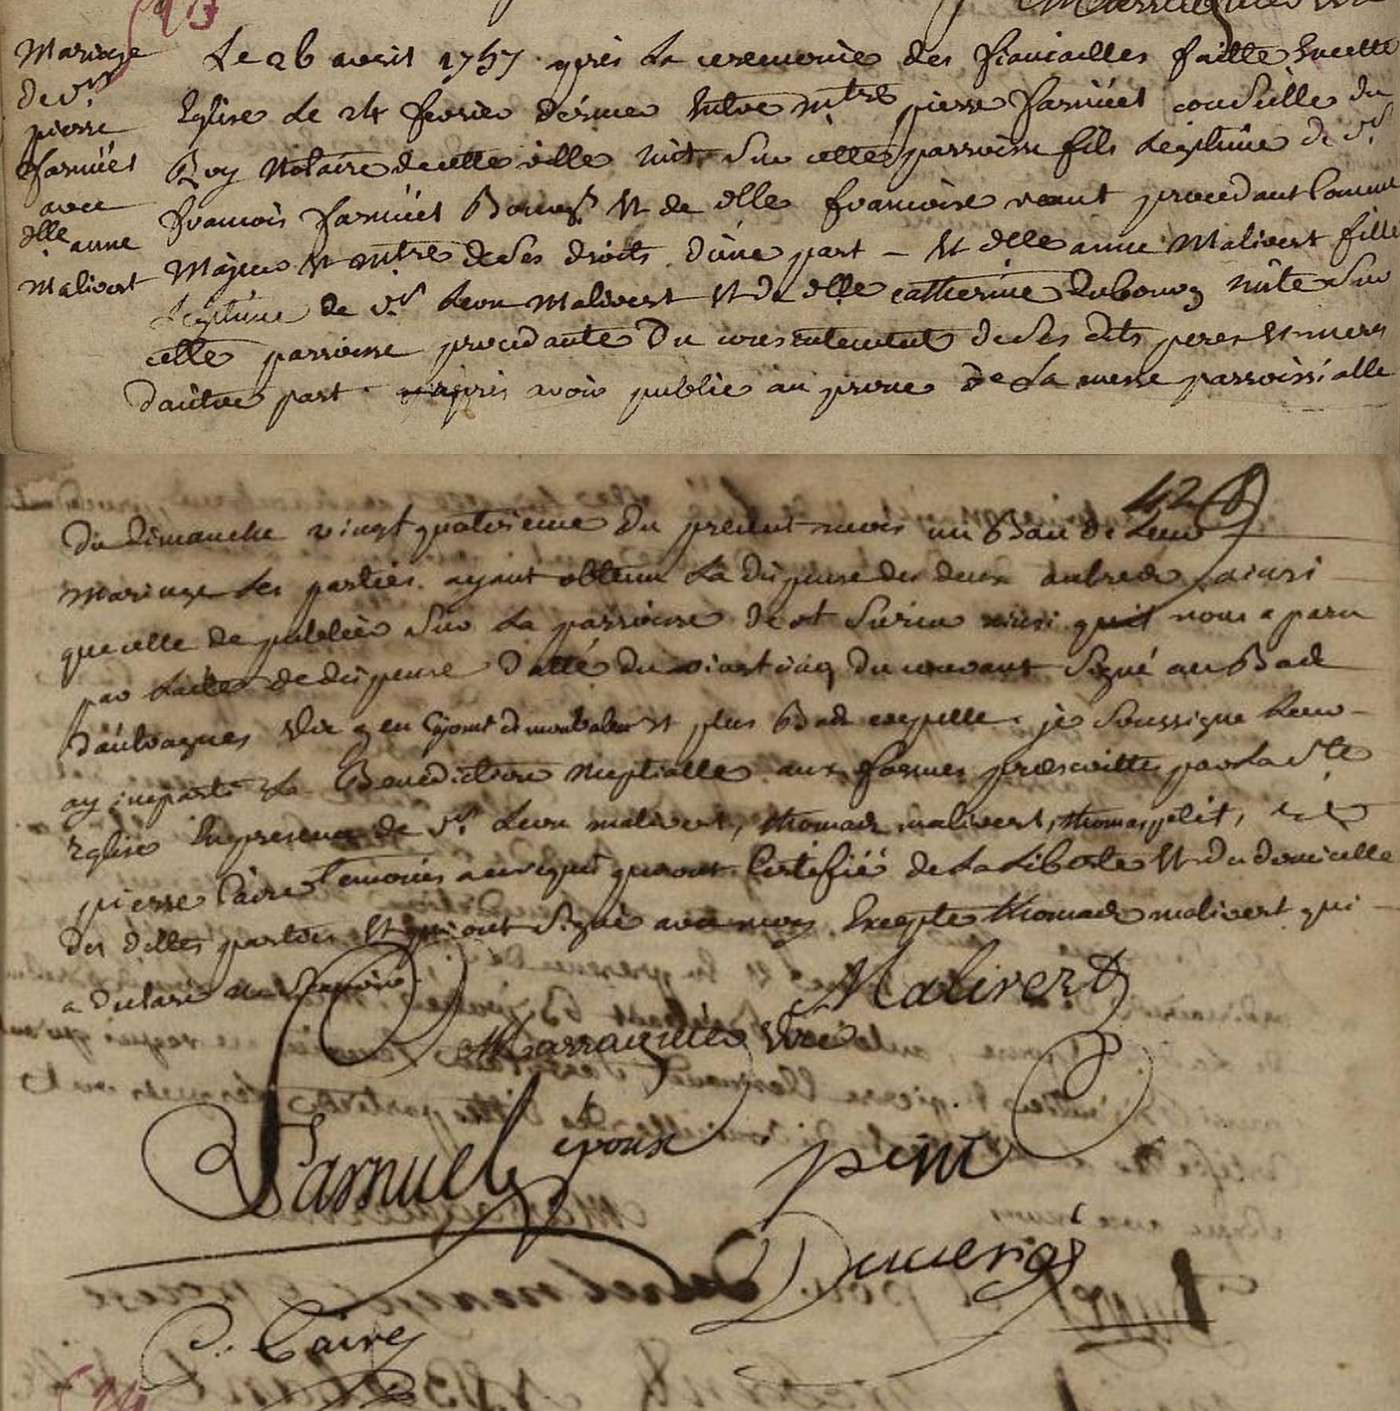 93
Mariage
de Sr
pierre
farnüel
avec
dlle anne
malivert
Le 26 avril 1757 après La ceremonie des fiancailles faitte En cette
Eglise Le 24 fevrier dernier Entre mtre pierre farnüel conseille du
Roy Notaire de cette ville nité sur cette parroisse fils Legitime de Sr
francois farnüel Bourgs Et de dlle francoise procedant Comme
Majeur Et mtre de Ses droits d'une part – Et dlle anne Malivert fille
Legitime de Sr Leon Malivert Et de dlle catherine Dubourg nite Sur
cette parroisse procedante Du consentement de Ses dits peres Et meres
dautre part. apres avoir publié au prone de La messe parroissialle
428
Du dimanche vingt quatrieme du present mois un Ban de Leur
Mariage Les parties ayant obtenu La dispense des deux autres ainsi
que celle de publier Sur La parroisse de St Surin ainsi quil nous a paru
par Lacte de dispense datté du vingt cinq du courant Signé au Bas
Dautvagnes vic gen et plus Bas coypelle. je Soussigne Leur
ay imparti La Benediction Nuptialle aux formes prescrittes par La Ste
Eglise En presence de Sr Leon malivert, thomas malivert, thomas petit, et
pierre Caire temoins a ce requis qui ont Certifié de La Liberté Et du domicille
des dittes parties Et qui ont Signé avec moy Excepte thomas malivert qui
a declaré ne Scavoir.
Malivert
Marraquier Vre
Farnuel epoux
petit
Ducerig
P. Caire
94